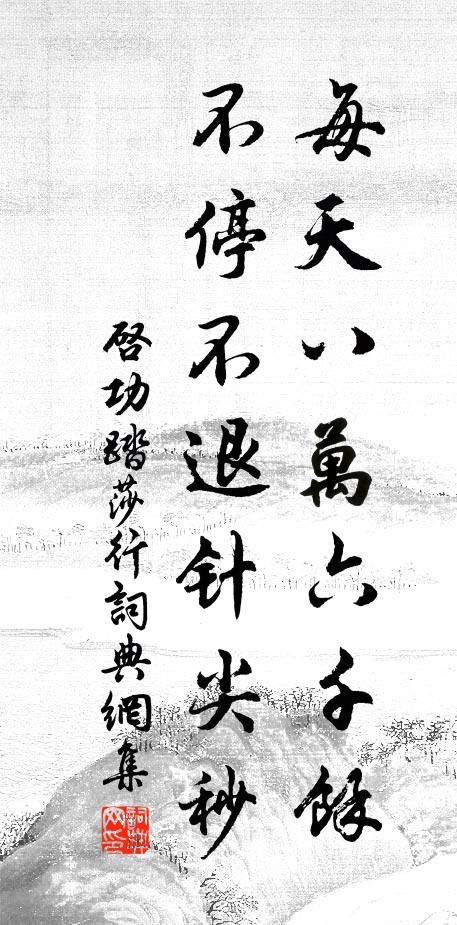 每天八萬六千餘
不停不退针尖秒
啓功踏莎行詞典網集